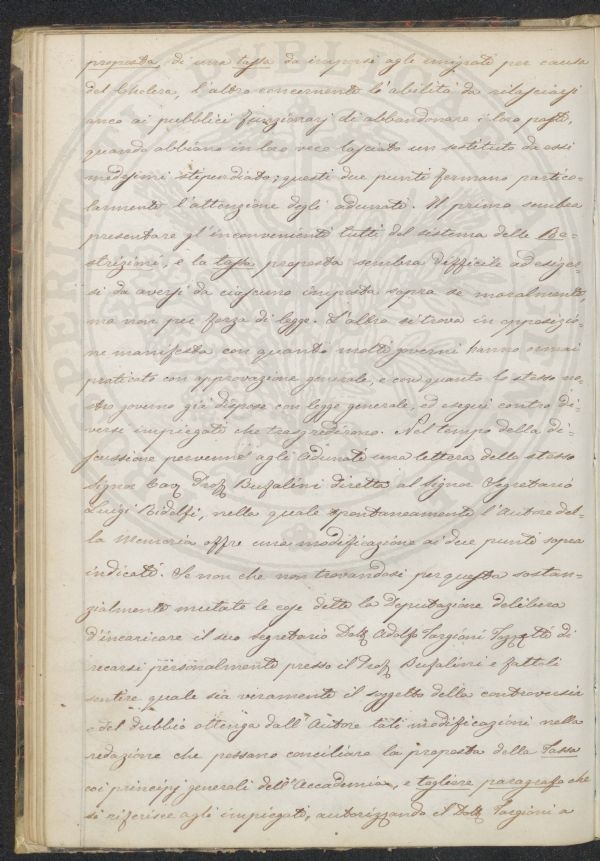 proposta, di una tassa da imporsi agli emigrati per causa
del Cholera, l'altro concernente l'abilità da rilasciarsi
anco ai pubblici funzionarj di abbandonare i loro posti,
quando abbiano in loro vece lasciato un sostituto da essi
medesimi stipendiato; questi due punti fermano partico-
larmente l'attenzione degli adunati. Il primo sembra
presentare gl'inconvenienti tutti del sistema delle Re-
strizioni, e la tassa proposta sembra difficile ad esiger-
si da aversi da ciascuno imposta sopra se moralmente,
ma non per forza di legge. L'altro si trova in opposizio-
ne manifesta con quanto molti governi hanno omai
praticato con approvazione generale, e con quanto lo stesso no-
stro governo già dispose con legge generale, ed eseguì contro di-
versi impiegati che trasgredirono. Nel tempo della di-
scussione pervenne agli Adunati una lettera dello stesso
Signor Cav. Prof. Bufalini diretta al Signor Segretario
Luigi Ridolfi, nella quale spontaneamente l'Autore del-
la Memoria offre una modificazione ai due punti sopra
indicati. Se non che non trovandosi per questa sostan-
zialmente mutate le cose dette la Deputazione delibera
d'incaricare il suo Segretario Dott. Adolfo Targioni Tozzetti di
recarsi personalmente presso il Prof. Bufalini e fattoli
sentire quale sia veramente il soggetto della controversia
e del dubbio ottenga dall'Autore tali modificazioni nella
redazione che possano conciliare la proposta della Tassa
coi principj generali dell'Accademia, e togliere paragrafo che
si riferisce agli impiegati, autorizzando il Dott. Targioni a